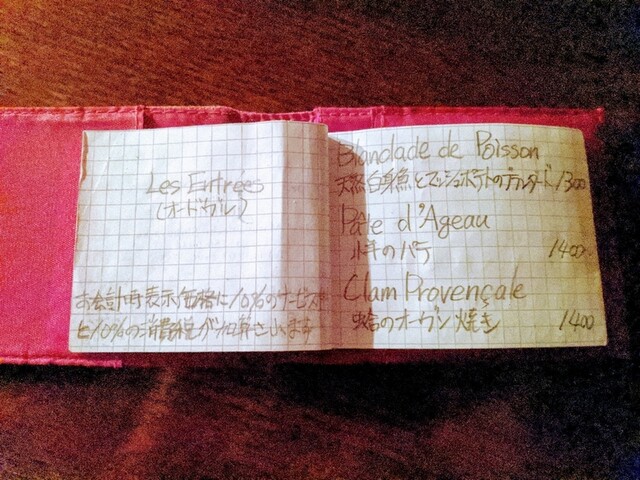 Les Entrées
(オードヴル)
お会計時表示価格に10%のサービス料
と10%の消費税が加算されます
Blandade de Poisson
天然白身魚とマッシュポテトのブランダード 1300
Pâte d'Ageau
小羊のパテ 1400
Clam Provençale
蛤のオーヴン焼き 1400